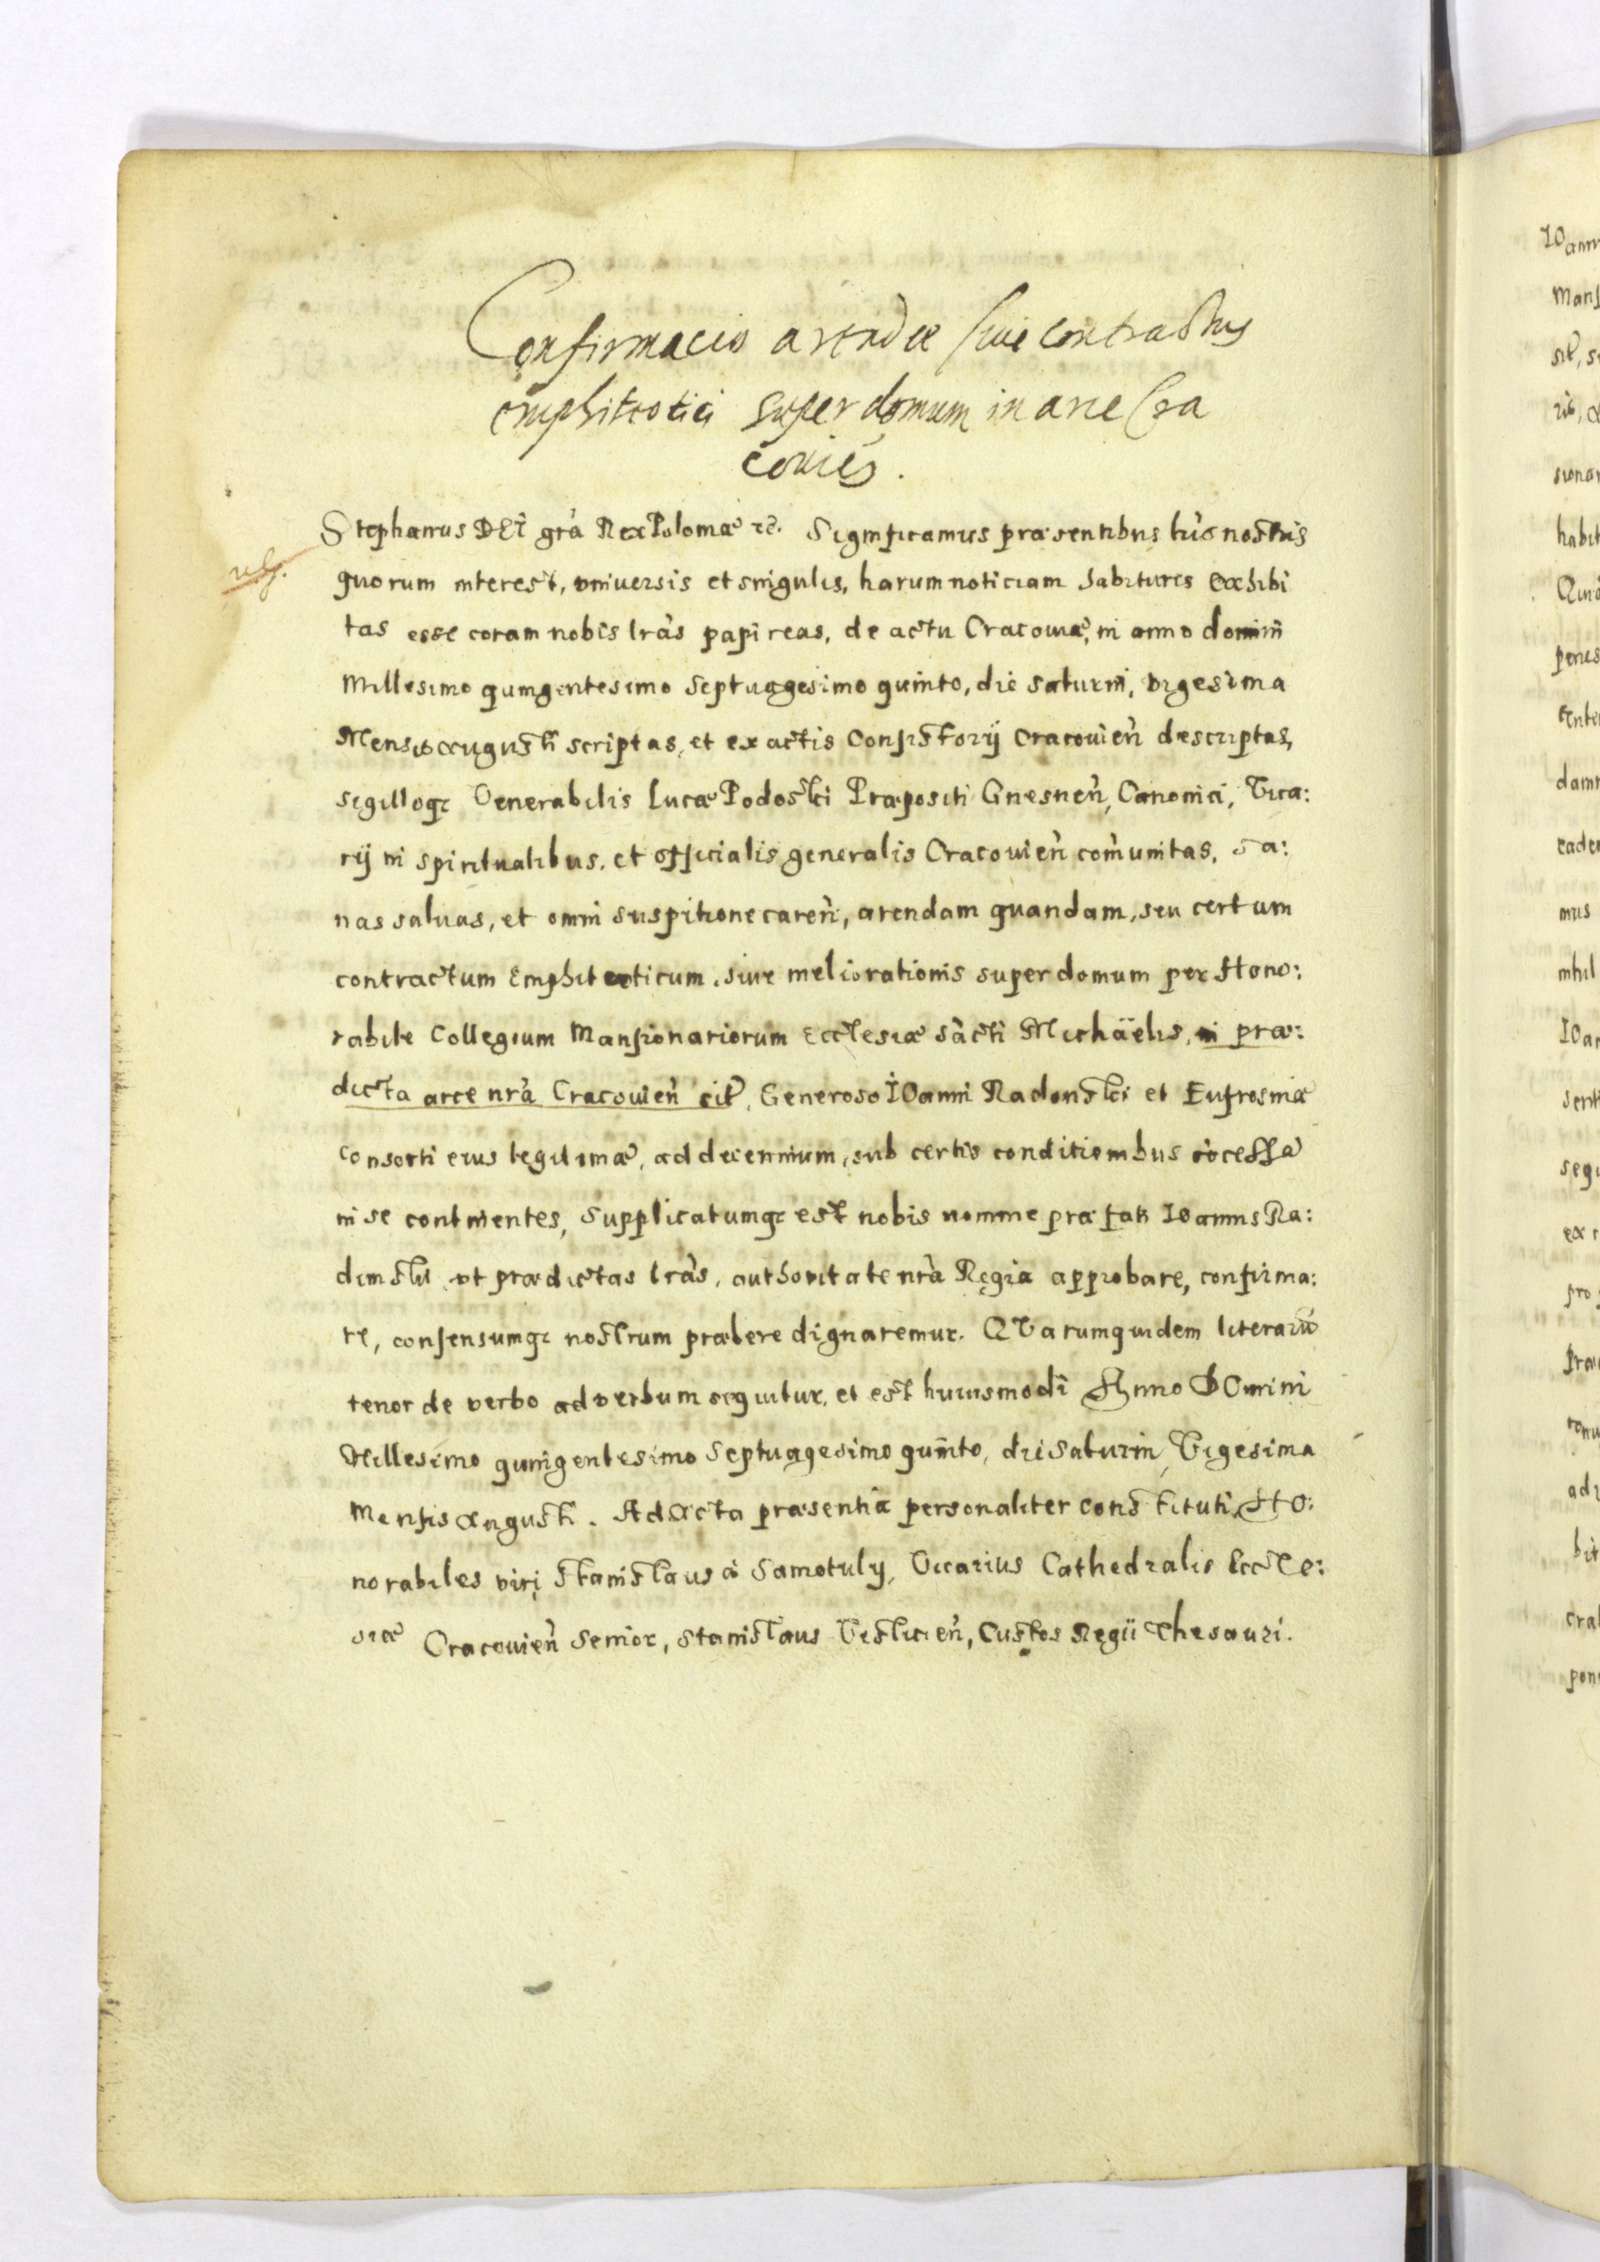 Confirmacio arendæ siue contractus
emphiteotici super domum in arce Cra
couień.
Stephanus DEI grà Rex Poloniæ etc. Significamus præsentibus lrìs nostris
quorum interest, vniuersis et singulis, harum noticiam habituris Exhibi
tas esse coram nobis lràs papireas, de actu Cracouiæ, in anno domini
Millesimo quingentesimo Septuagesimo quinto, die saturni, vigesima
Mensis augusti scriptas, et ex actis Consistorij Cracouień descriptas,
sigilloqз Venerabilis Lucæ Podoski Præpositi Gnesneń, Canonici, Vica:
rij in spiritualibus, et officialis generalis Cracouień com̀unitas, sa:
nas saluas, et omni suspitione careń, arendam quandam, seu certum
contractum Emphiteoticum, siue meliorationis super domum per Hono:
rabile Collegium Mansionariorum Ecclesiæ sàcti Michäelis, in præ:
dicta arce nrà Cracouień sit, Generoso IOanni Radonski et Eufrosinæ
consorti eius legitimæ, ad decennium, sub certis conditionibus cócessæ
in se continentes, Supplicatumqз est nobis nomine præfati IOannis Ra:
dinski vt prædictas lràs, authoritate nrà Regia approbare, confirma:
re, consensumqз nostrum præbere dignaremur. QVarumquidem literarū
tenor de verbo ad verbum sequitur, et est huiusmodi Anno DOmini
Millesimo quingentesimo Septuagesimo quinto, die Saturni, Vigesima
Mensis Augusti. Ad Acta præsentia personaliter constituti, Ho:
norabiles viri Stanislaus à Samotuly, Vicarius Cathedralis Eccle:
siæ Cracouień Senior, Stanislaus Vislicień, Custos Regii Thesauri.